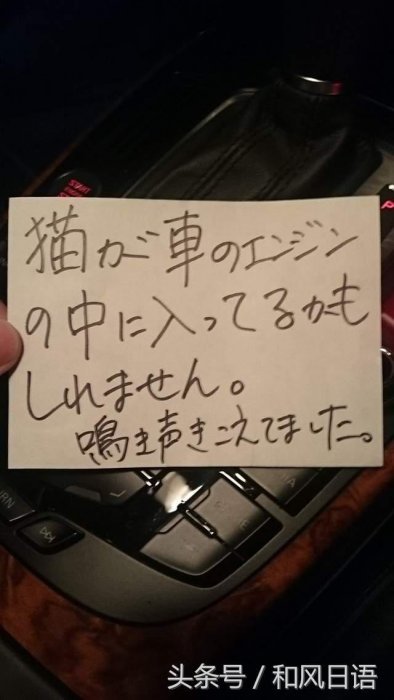 START
猫が車のエンジン
の中に入ってるかも
しれません。
鳴き声きこえてました。
头条号 / 和风日语